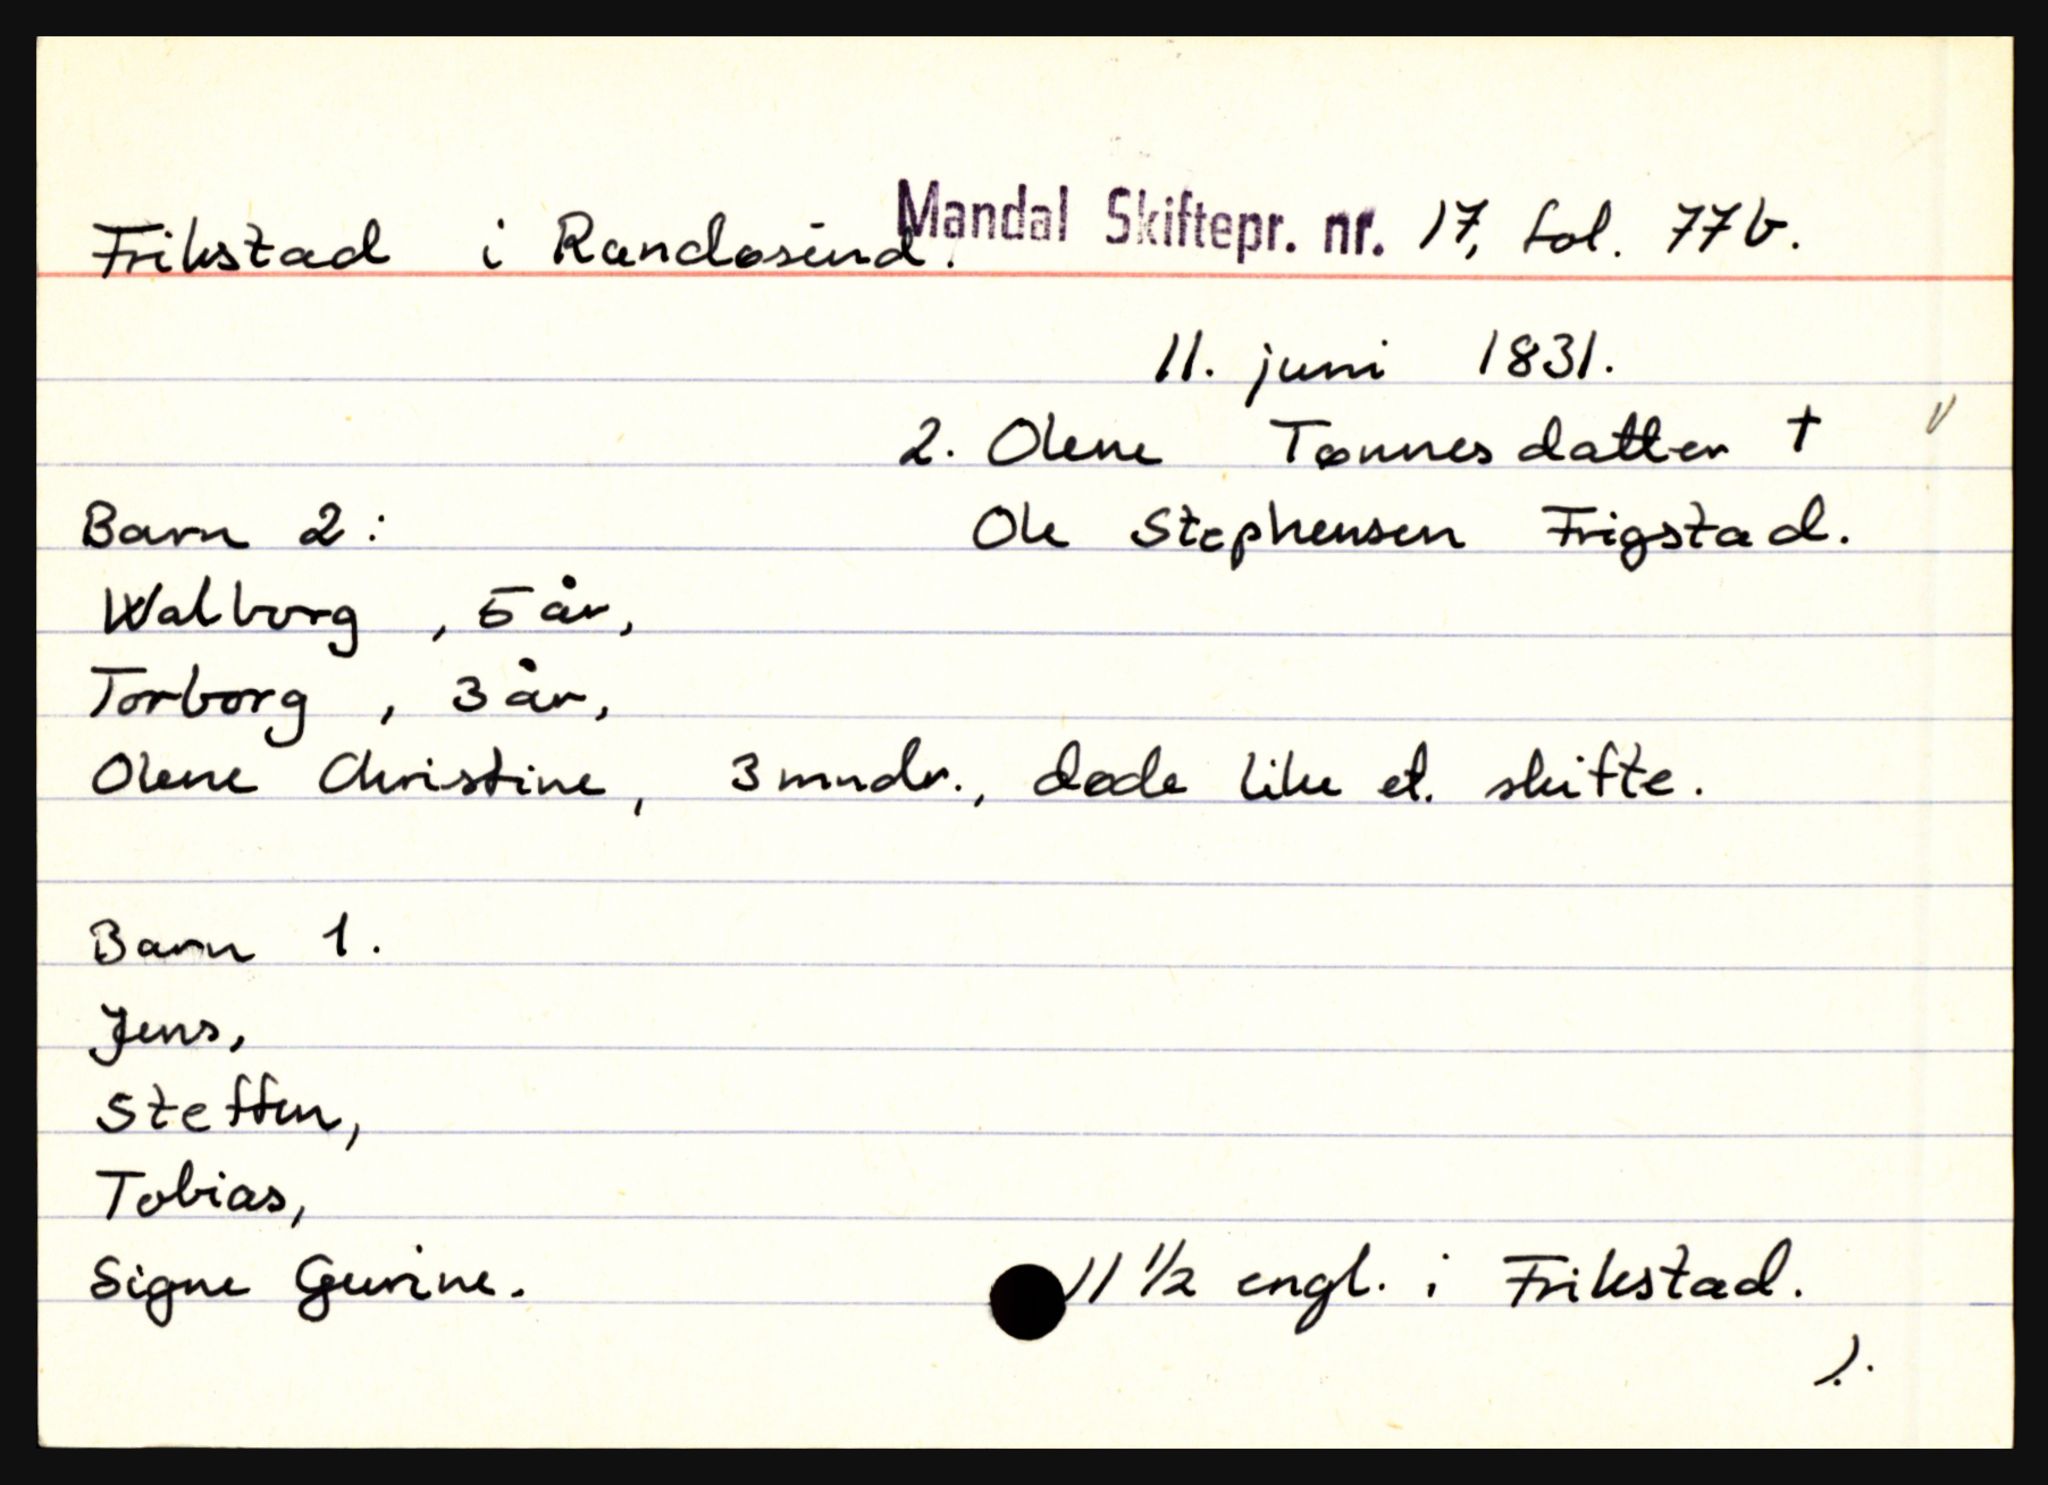 Frikstad i Randøsund. Mandal Skiftepr. nr. 17, fol. 77b.
11. juni 1831.
2. Olene Tønnesdatter †
Barn 2: Ole Stephensen Frigstad.
Walborg, 5 år,
Torborg, 3 år,
Olene Christine, 3 mndr., døde like et. skifte.
Barn 1.
Jens,
Steffen,
Tobias,
Signe Gurine. 11 1/2 engl. i Frikstad.
).